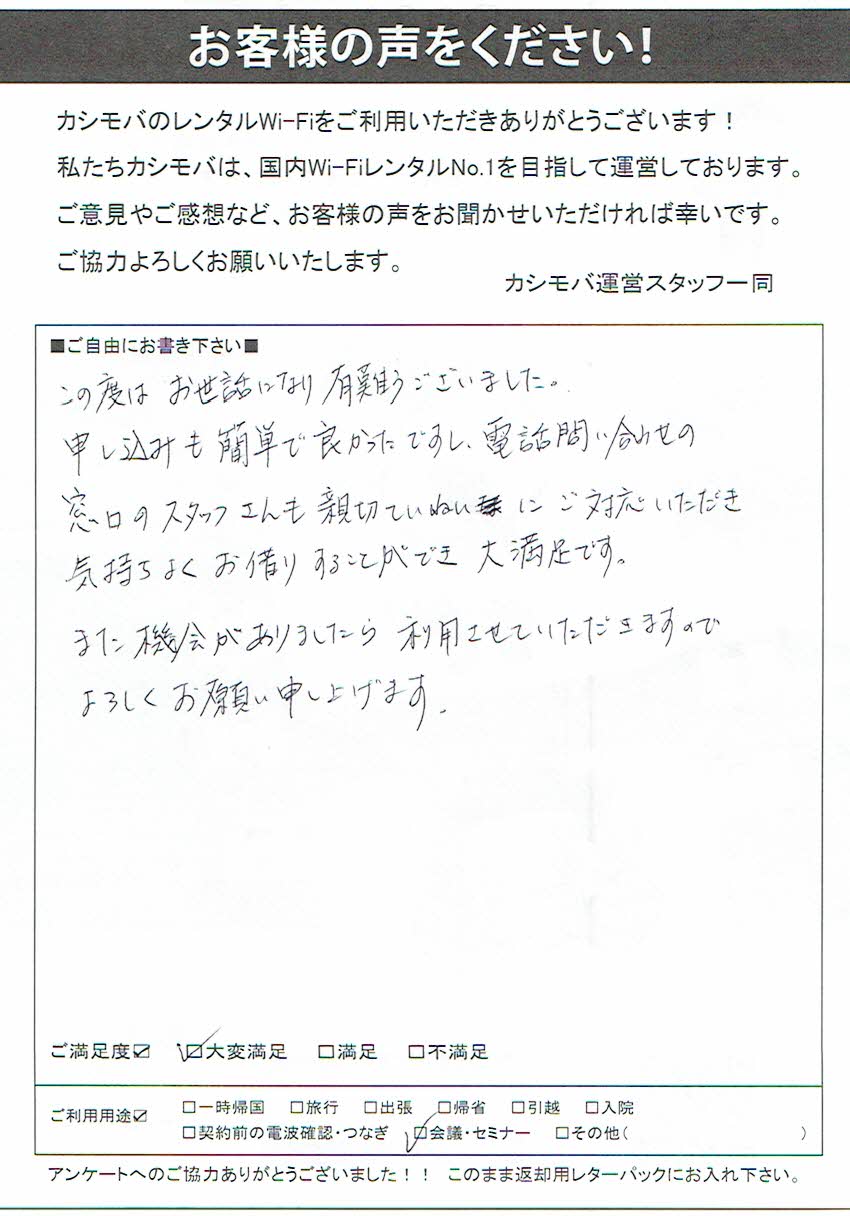 お客様の声をください!
カシモバのレンタルWi-Fiをご利用いただきありがとうございます！
私たちカシモバは、国内Wi-FiレンタルNo.1を目指して運営しております。
ご意見やご感想など、お客様の声をお聞かせいただければ幸いです。
ご協力よろしくお願いいたします。
カシモバ運営スタッフ一同
■ご自由にお書き下さい■
この度は お世話になり 有難うございました。
申し込みも簡単で良かったですし、電話問い合わせの
窓口のスタッフさんも親切ていねいにご対応いただき
気持ちよくお借りすることができ 大満足です。
また機会がありましたら 利用させていただきますので
よろしくお願い申し上げます。
ご満足度☑ ☑大変満足 □満足 □不満足
ご利用用途☑ □一時帰国 □旅行 □出張 □帰省 □引越 □入院
□契約前の電波確認・つなぎ ☑会議・セミナー □その他( )
アンケートへのご協力ありがとうございました！！ このまま返却用レターパックにお入れ下さい。